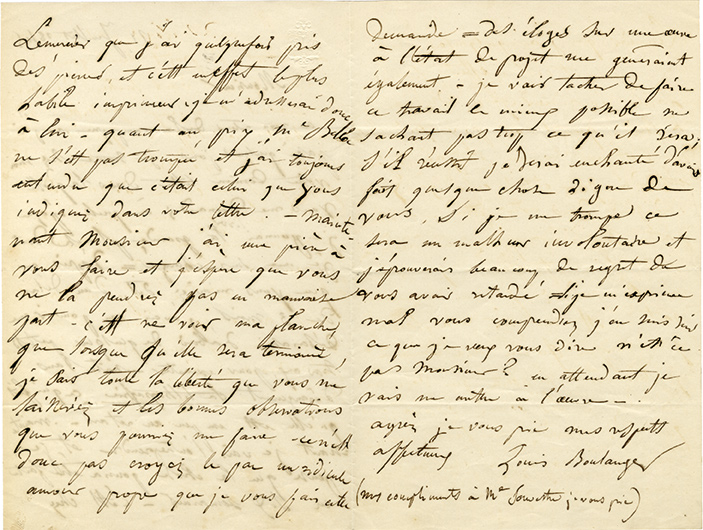 Lemercier que j'ai quelquefois pris
des pierres, et c'est en effet le plus
habile imprimeur je m'adresserai donc
à lui - quant au prix, Mr
ne s'est pas trompé et j'ai toujours
entendu que c'était celui que vous
indiquez dans votre lettre. - mainte
nant Monsieur j'ai une prière à
vous faire et j'espère que vous
ne la prendrez pas en mauvaise
part - c'est ne voir ma planche,
que lorsque qu'elle sera terminée,
je sais toute la liberté que vous me
laisseriez et les bonnes observations
que vous pourriez me faire - ce n'est
donc pas croyez le par un ridicule
amour propre que je vous fais cette
demande = des éloges sur une œuvre
à l'état de projet me gêneraient
également - je vais tacher de faire
ce travail le mieux possible ne
sachant pas trop ce qu'il sera.
S'il réussit je serai enchanté d'avoir
fait quelque chose digne de
vous, Si je me trompe ce
sera un malheur involontaire et
j'éprouverais beaucoup de regret de
vous avoir retardé = Si je m'exprime
mal vous comprendrez j'en suis sûr
ce que je veux vous dire n'est ce
pas Monsieur? en attendant je
vais me mettre à l'œuvre -.
agréez je vous prie mes respects
affectueux Louis Boulanger
(mes compliments à Mr je vous prie)